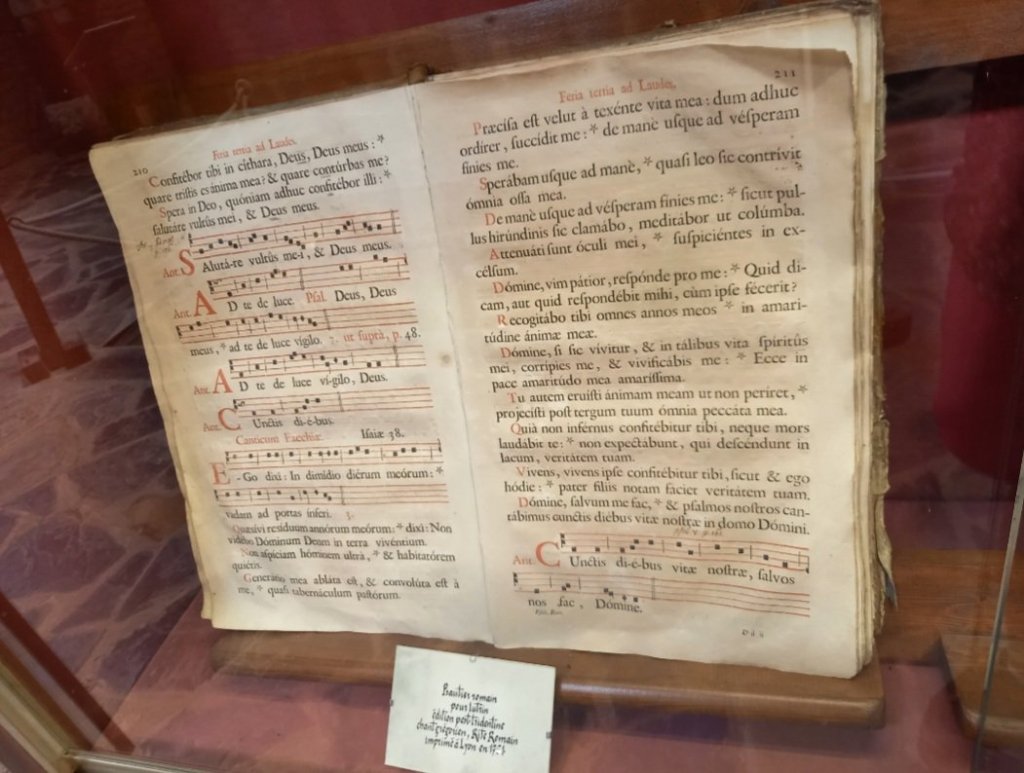 210
Feria tertia ad Laudes.
Confitébor tibi in cíthara, Deus, Deus meus : *
quare tristis es ánima mea? & quare contúrbas me?
Spera in Deo, quóniam adhuc confitébor illi : *
salutáre vultûs mei, & Deus meus.
Ant. SAlutá-re vultûs me-i, & Deus meus.
Ant. AD te de luce. Psal. Deus, Deus
meus, * ad te de luce vígilo. 7. ut suprà, p. 48.
Ant. AD te de luce ví-gilo, Deus.
Ant. CUnctis di-é-bus.
Canticum Ezechiæ. Isaiæ 38.
E-Go dixi: In dimídio diérum meórum: *
vadam ad portas ínferi. 3.
Quæsívi resíduum annórum meórum: * dixi: Non
vidébo Dóminum Deum in terra vivéntium.
Non aspíciam hóminem ultrà, * & habitatórem
quiétis.
Generátio mea abláta est, & convolúta est à
me, * quasi tabernáculum pastórum.
211
Feria tertia ad Laudes.
Præcísa est velut à texénte vita mea : dum adhuc
ordírer, succídit me : * de manè usque ad vésperam
fínies me.
Sperábam usque ad manè, * quasi leo sic contrívit
ómnia ossa mea.
De manè usque ad vésperam fínies me : * sicut pul-
lus hirúndinis sic clamábo, meditábor ut colúmba.
Attenuáti sunt óculi mei, * suspiciéntes in ex-
célsum.
Dómine, vim pátior, respónde pro me : * Quid di-
cam, aut quid respondébit mihi, cùm ipse fécerit?
Recogitábo tibi omnes annos meos * in amari-
túdine ánimæ meæ.
Dómine, si sic vívitur, & in tálibus vita spíritûs
mei, corrípies me, & vivificábis me : * Ecce in
pace amaritúdo mea amaríssima.
Tu autem eruísti ánimam meam ut non períret, *
projecísti post tergum tuum ómnia peccáta mea.
Quià non infernus confitébitur tibi, neque mors
laudábit te : * non expectábunt, qui descéndunt in
lacum, veritátem tuam.
Vivens, vivens ipse confitébitur tibi, sicut & ego
hódie : * pater fíliis notam fáciet veritátem tuam.
Dómine, salvum me fac, * & psalmos nostros can-
tábimus cunctis diébus vitæ nostræ in domo Dómini.
Ant. CUnctis di-é-bus vitæ nostræ, salvos
nos fac, Dómine.
Psalt. Rom.
D d ij
Psautier romain
pour lutrin
édition post tridentine
chant grégorien, Rite Romain
imprimé à Lyon en